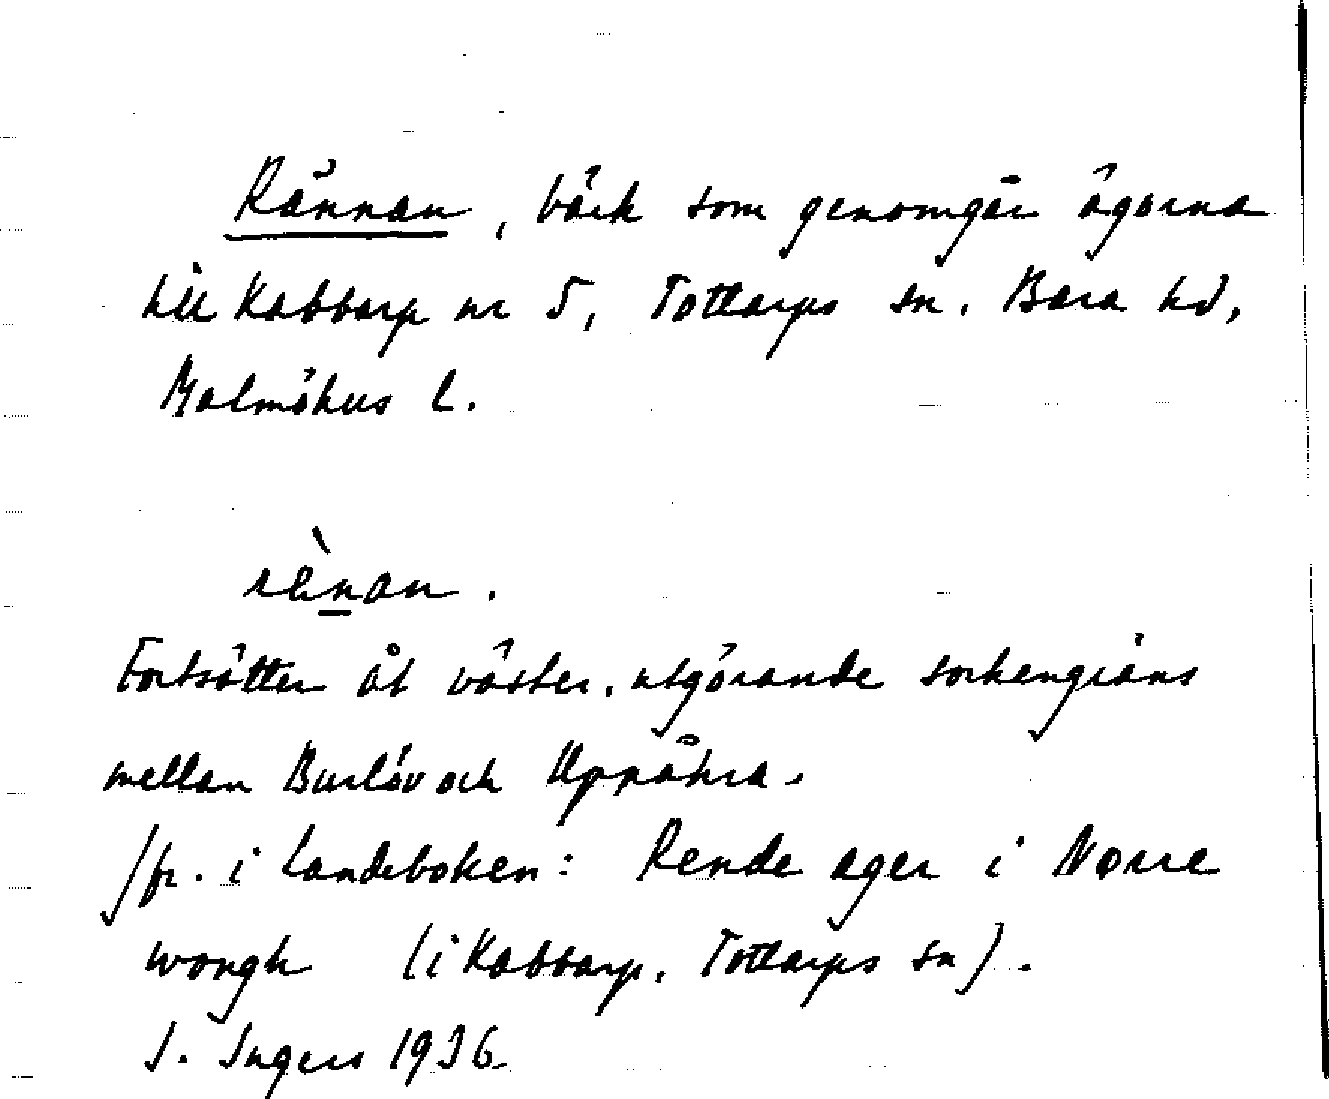 Rännan, bäck som genomgår ägorna
till Kabbarp nr 5, Tottarps sn. Bara hd,
Malmöhus l.
rènan.
Fortsätter åt väster, utgörande sockengräns
mellan Burlöv och Uppåkra.
Jfr. i Landeboken: Rende ager i Norre
wongh (i Kabbarp, Tottarps sn).
I. Ingers 1936